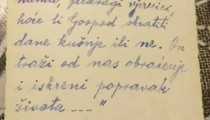 nama, predragi vjernici,
hoće li Gospod skratiti
dane kušnje ili ne. On
traži od nas obraćenje
i iskreni popravak
života ---"